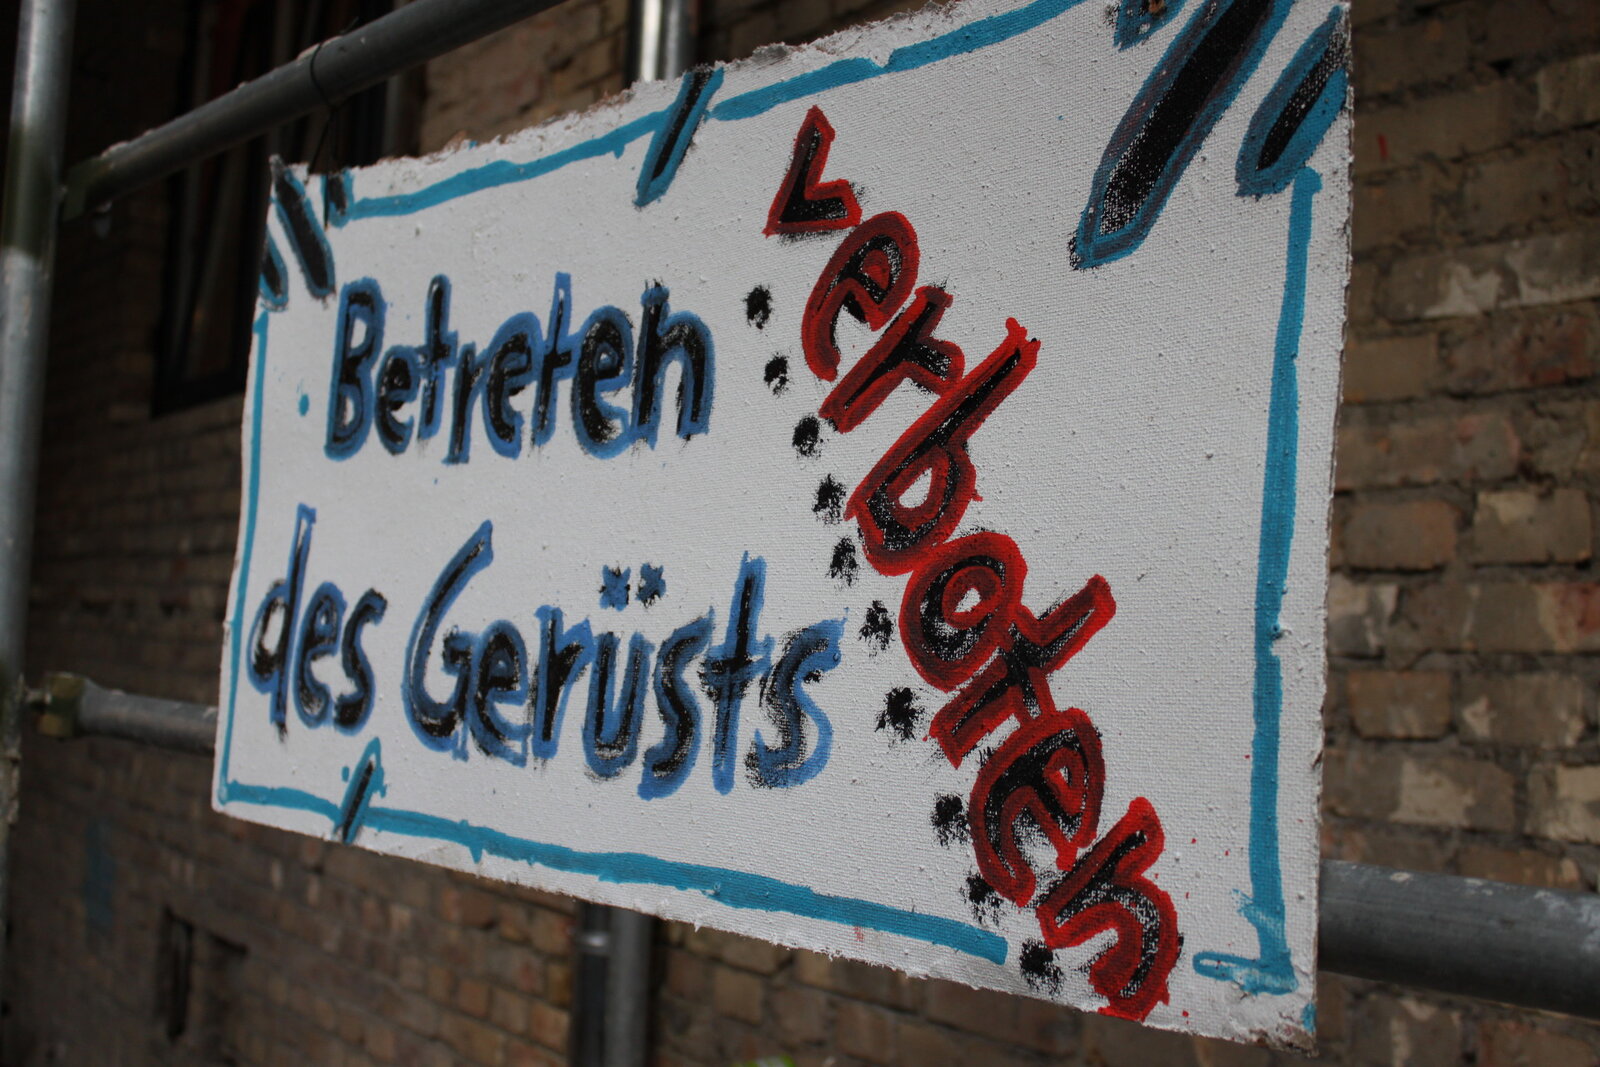 Betreten
des Gerüsts
verboten